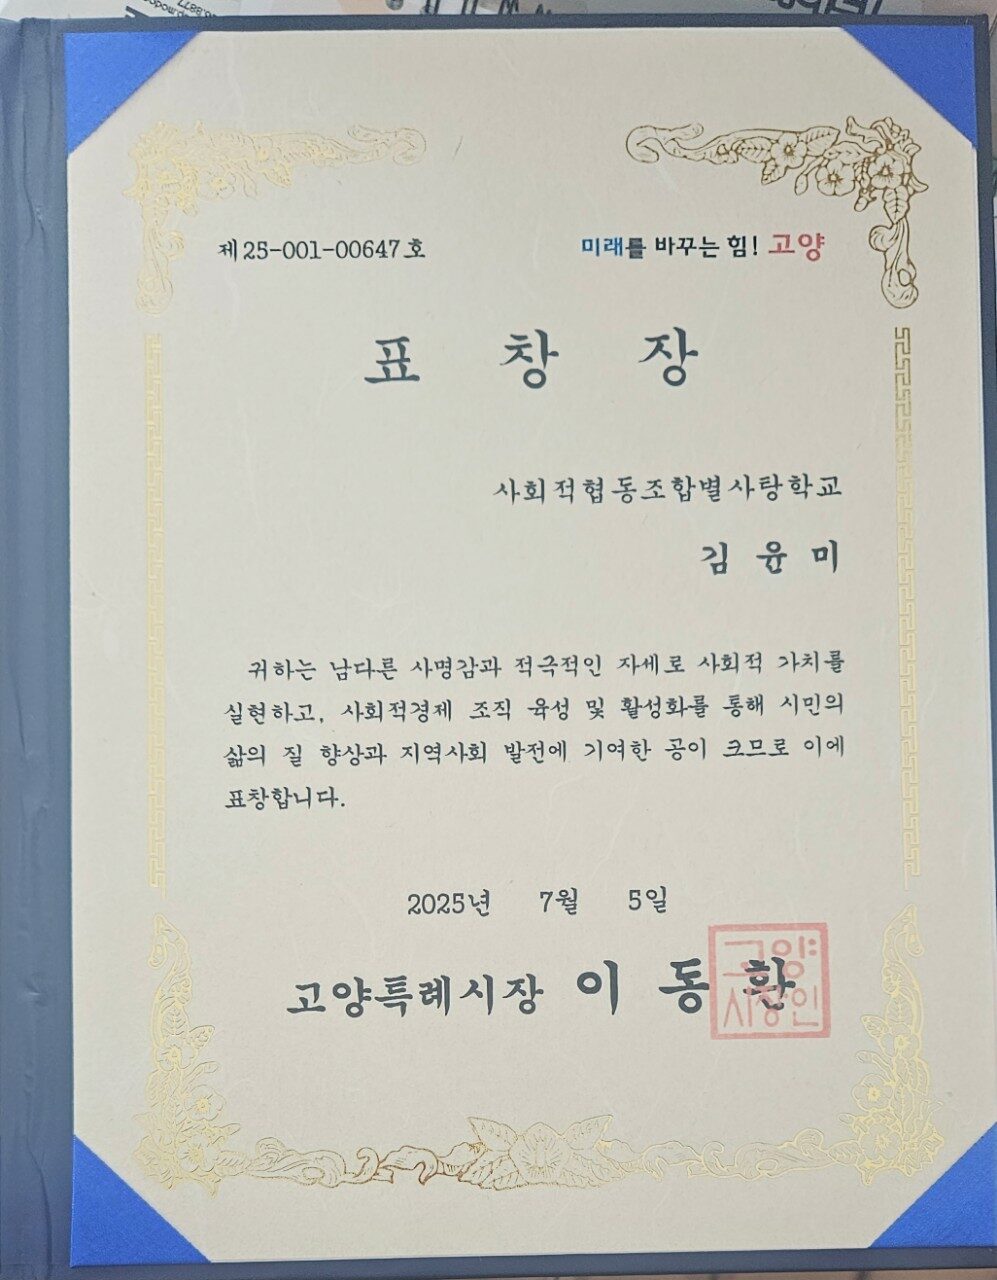 제 25-001-00647 호
미래를 바꾸는 힘! 고양
표 창 장
사회적협동조합별사탕학교
김 윤 미
귀하는 남다른 사명감과 적극적인 자세로 사회적 가치를
실현하고, 사회적경제 조직 육성 및 활성화를 통해 시민의
삶의 질 향상과 지역사회 발전에 기여한 공이 크므로 이에
표창합니다.
2025년 7월 5일
고양특례시장 이 동 환
고양
시장인